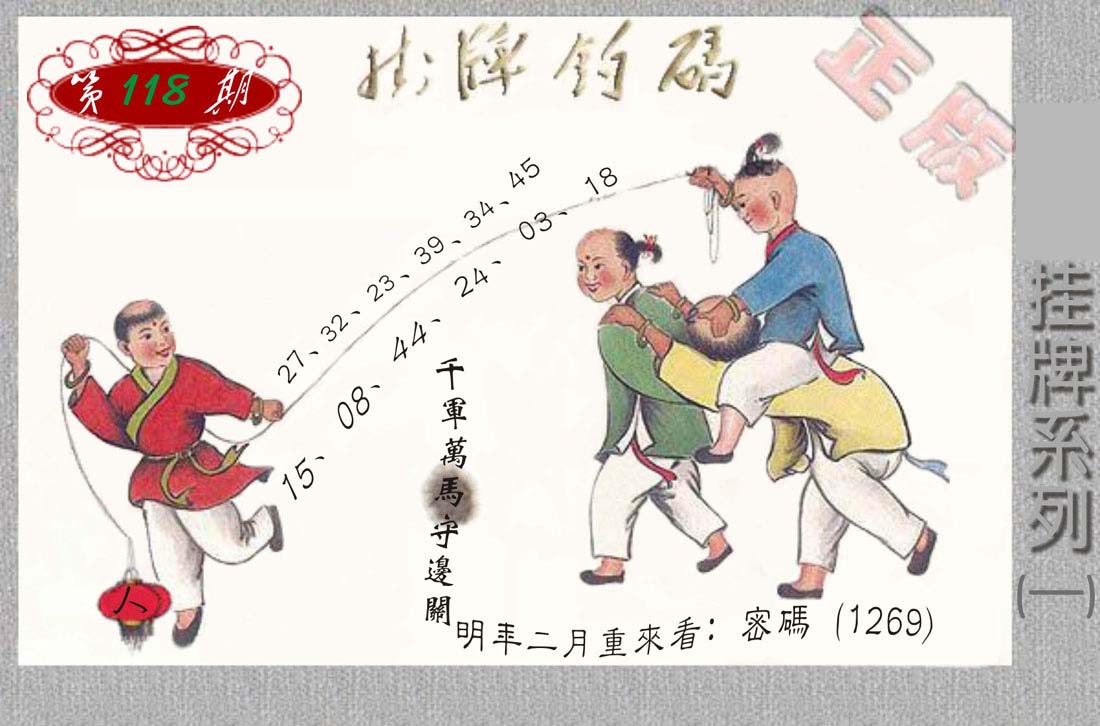 第118期
掛牌釣碼
正版
27、32、23、39、34、45
15、08、44、24、03、18
千軍萬馬守邊關
人
明年二月重來看：密碼（1269）
挂牌系列(一)